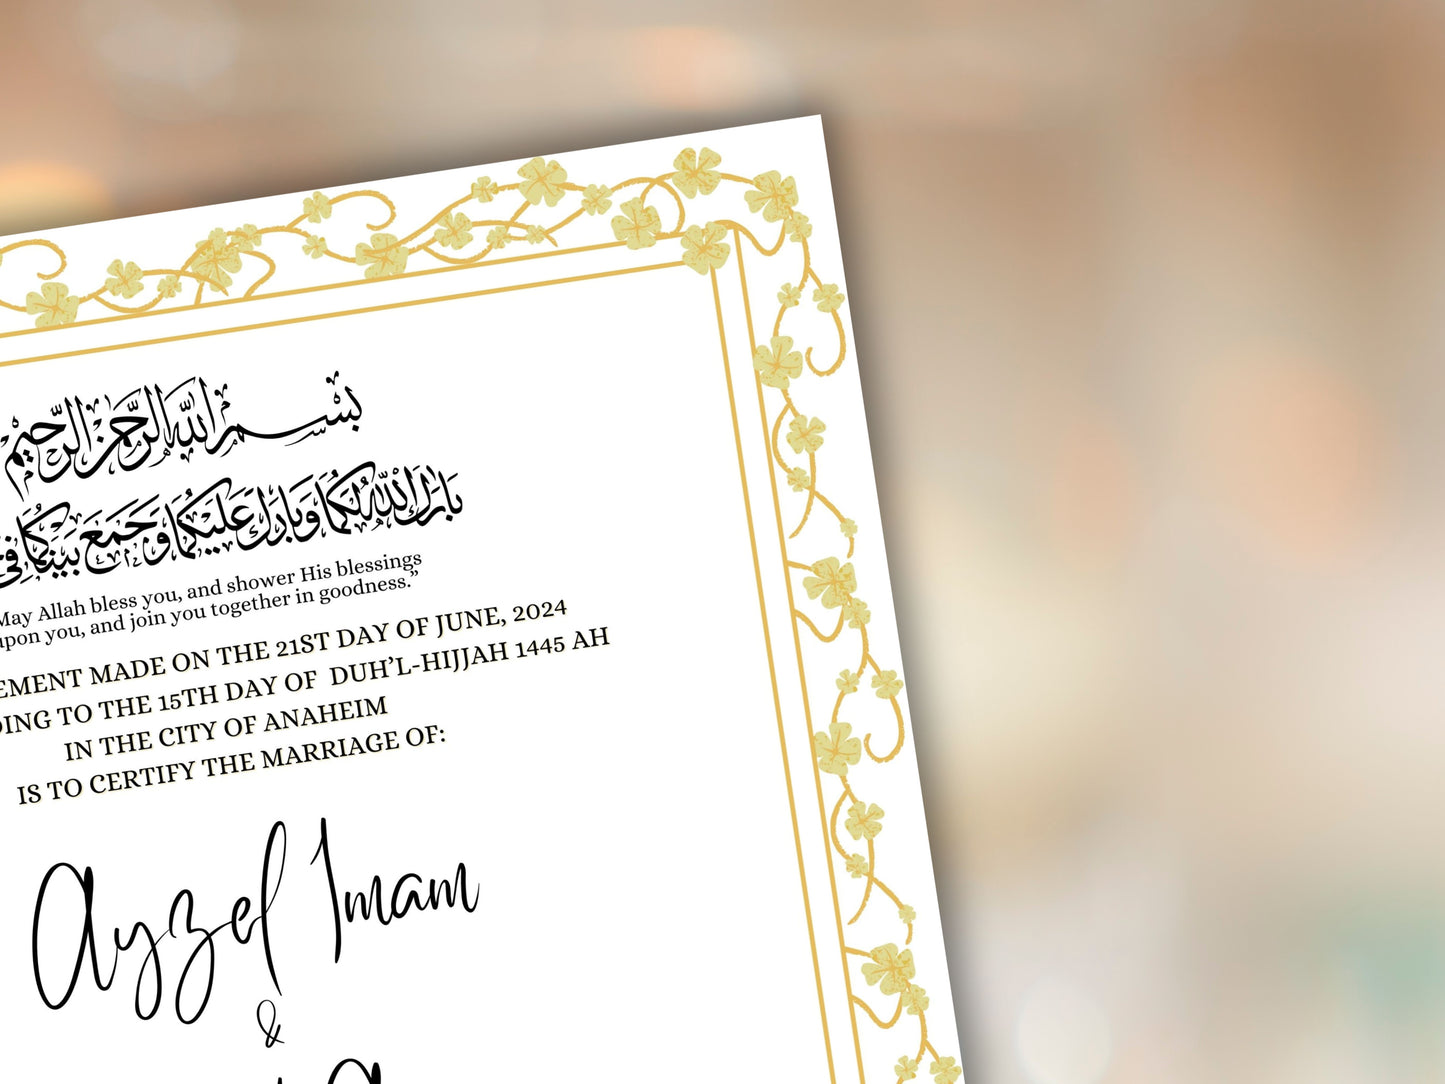 بِسْمِ اللهِ الرَّحْمٰنِ الرَّحِيْمِ
بَارَكَ اللهُ لَكُمَا وَبَارَكَ عَلَيْكُمَا وَجَمَعَ بَيْنَكُمَا فِي
May Allah bless you, and shower His blessings
upon you, and join you together in goodness.”
EMENT MADE ON THE 21ST DAY OF JUNE, 2024
DING TO THE 15TH DAY OF DUH’L-HIJJAH 1445 AH
IN THE CITY OF ANAHEIM
IS TO CERTIFY THE MARRIAGE OF:
Ayzel Imam
&